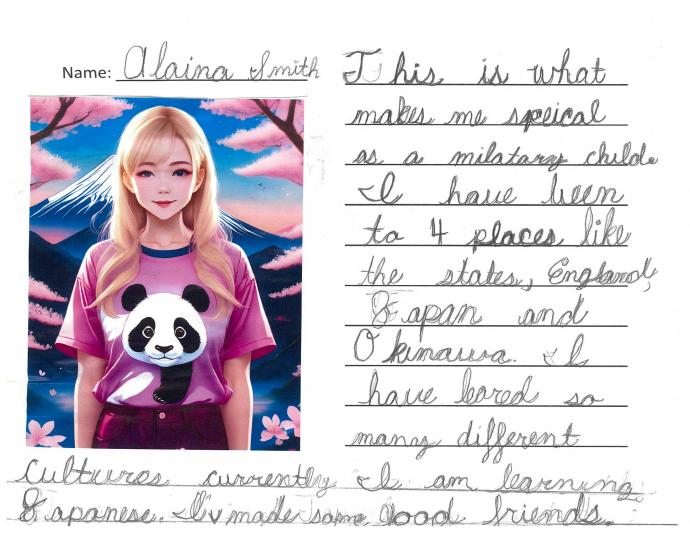 Name: Alaina Smith
This is what
makes me speical
as a milatary child.
I have been
to 4 places like
the states, England,
Japan and
Okinawa. I
have leared so
many different
cultures currently I am learning
Japanese. I'v made some good friends.